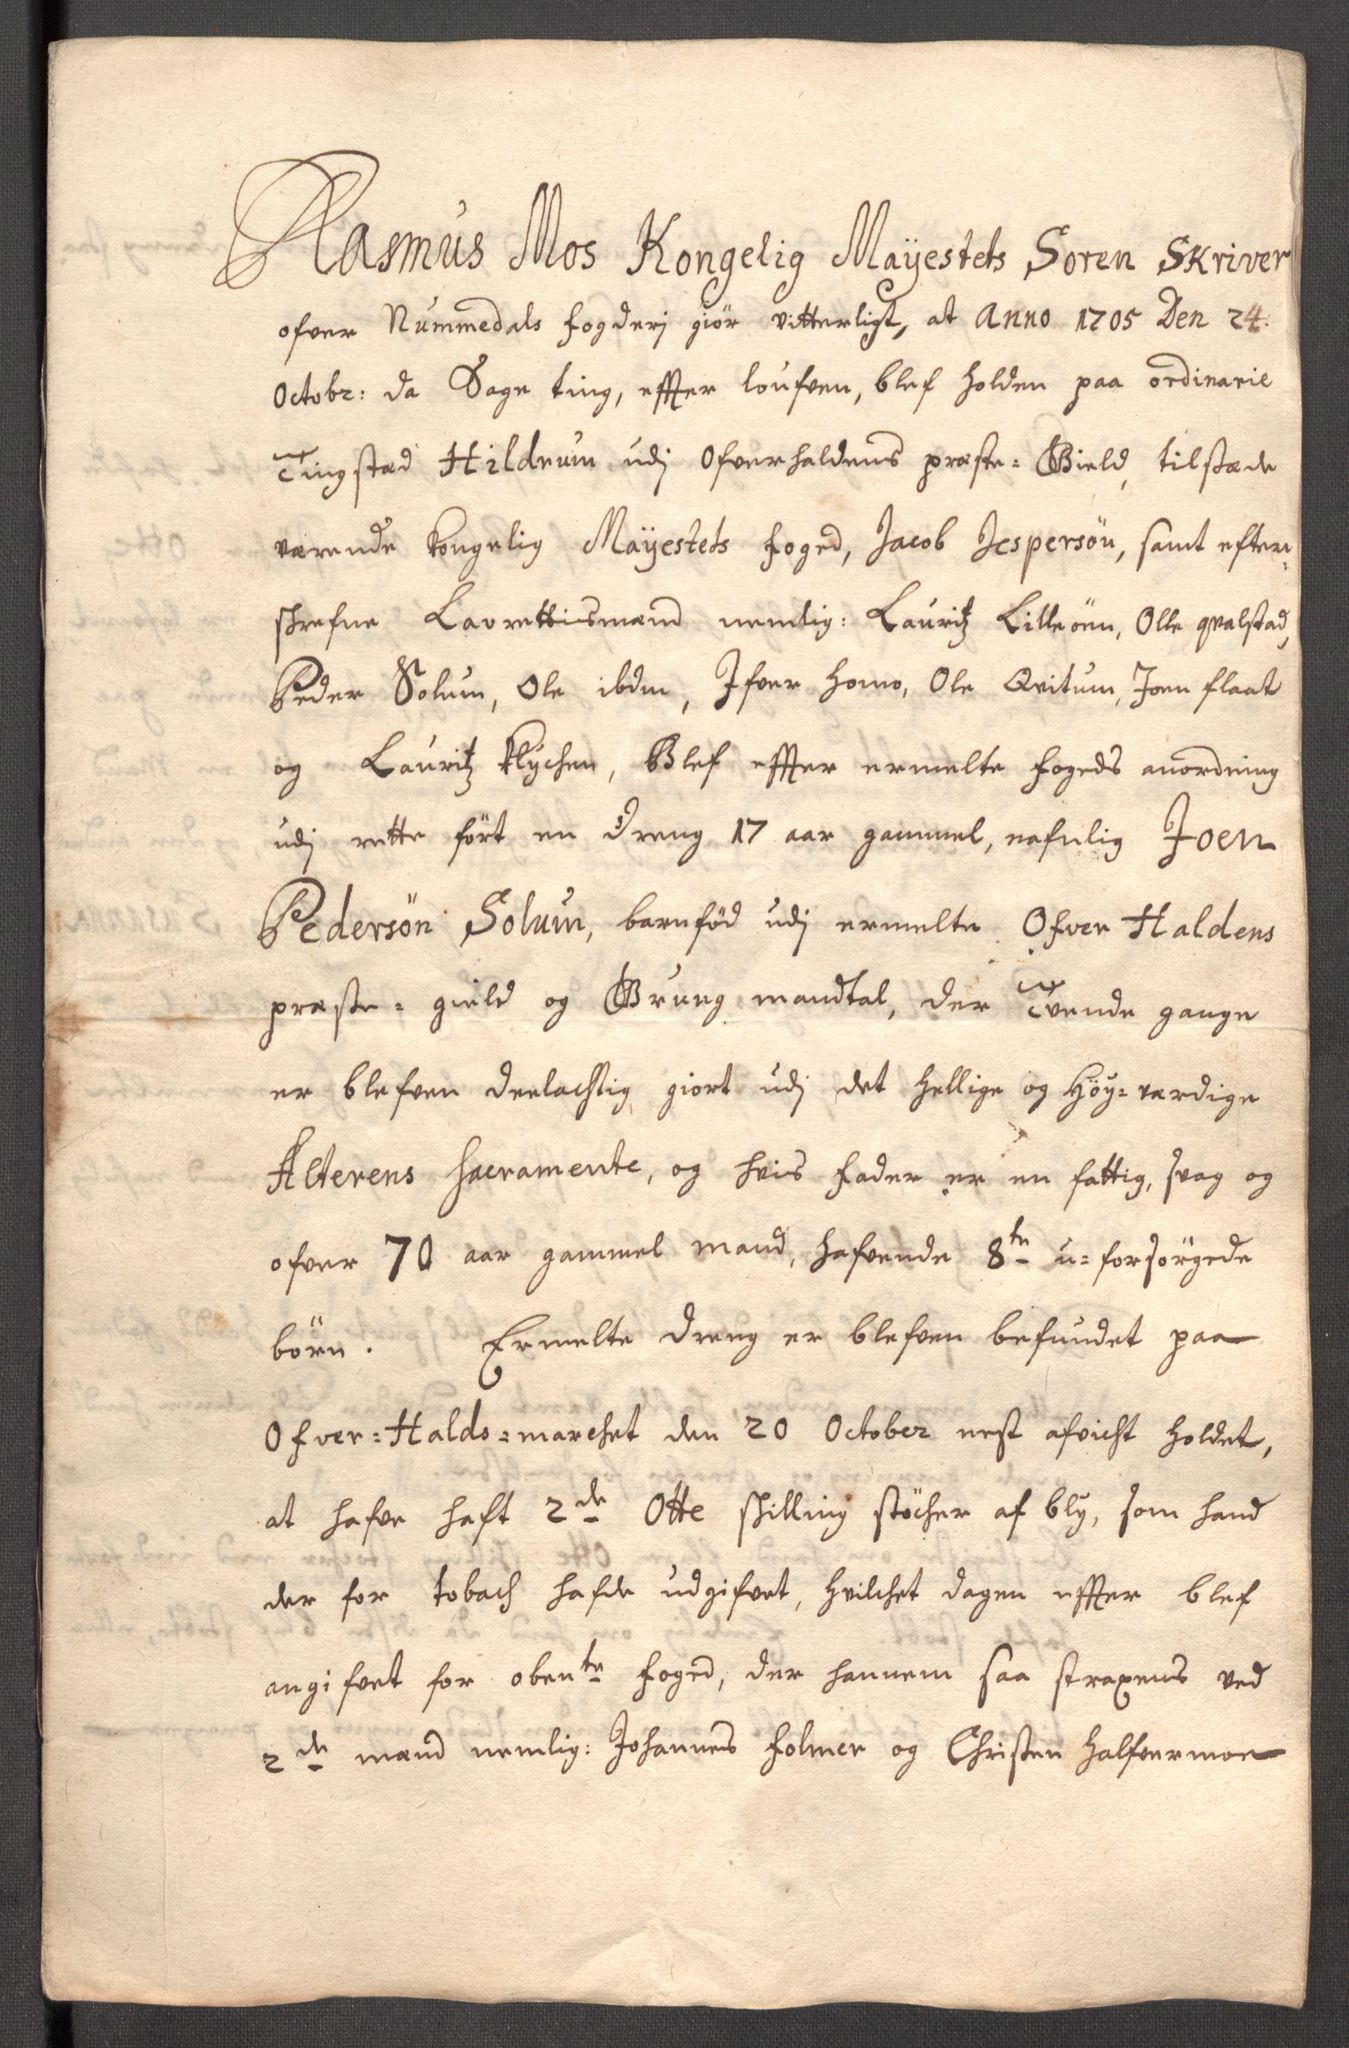 Rasmus Mos Kongelig Maÿestets Soren Skriver
ofver Nummedals fogderj giör vitterligt, at Anno 1705 Den 24.
Octobr: da Sage ting, effter loufven, blef holden paa ordinarie
Tingstæd Hildrum udj Ofverhaldens præste=Gield, tilstæde
værende kongelig Maÿestets foged, Jacob Jespersön, samt efter=
skrefne Lavrettismænd nemlig: Lauritz Lilleöen, Olle qvalstad,
Peder Solum, Ole ibdm, Ifver Homo, Ole Qvitum, Joen flaat
og Lauritz Klÿchen, Blef effter ermelte fogeds anordning
udj rette fört en Dreng 17 aar gammel, nafnlig Joen
Pedersön Solum, barnfød udj ermelte Ofver Haldens
præste=gield og Grung mandtal, der Tvende gange
er blefven deelachtig giort udj det hellige og Höÿ=værdige
Alterens Sacramente, og hvis fader er en fattig, svag og
ofver 70 aar gammel mand, hafvende 8te u=forsörgede
börn. Ermelte dreng er blefven befundet paa
Ofver=Halds=marchet den 20 October nest afvicht holdet,
at hafve haft 2de Otte skilling stöcher af blÿ, som hand
der for tobach hafde udgifvet, hvilchet dagen effter blef
angifvet for obente foged, der hannem saa straxens ved
2de mænd nemlig: Johannes folmer og Christen Halfvermoe